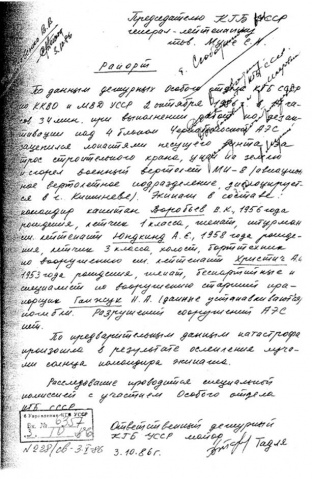 Председателю КГБ УССР
генерал-лейтенанту
тов. Мусе С.Н.
Рапорт
По данным дежурных Особого отдела КГБ СССР
по ККВО и МВД УССР 2 октября
34 мин. при выполнении работ по дезак-
тивации над 4 блоком Чернобыльской АЭС
зацепился лопастями несущего винта за
трос строительного крана, упал на землю
и сгорел военный вертолет МИ-8 (авиацион-
ное вертолетное подразделение дислоцирует-
ся в г. Кишиневе). Экипаж в составе:
командир капитан Воробьев В.К., 1956 года
рождения, летчик 1 класса, женат, штурман
ст. лейтенант Юнгкинд А.Е., 1958 года рожде-
ния, летчик 3 класса, холост, борттехник
по вооружению ст. лейтенант Христич А.
1953 года рождения, женат, беспартийные и
специалист по вооружению старший пра-
порщик Ганжук Н.А. (данные устанавливаются)
погибли. Разрушений сооружений АЭС
нет.
По предварительным данным катастрофа
произошла в результате ослепления луча-
ми солнца командира экипажа.
Расследование проводится специальной
комиссией с участием Особого отдела
КГБ СССР.
Ответственный дежурный
КГБ УССР майор
3.10.86г. Тадля